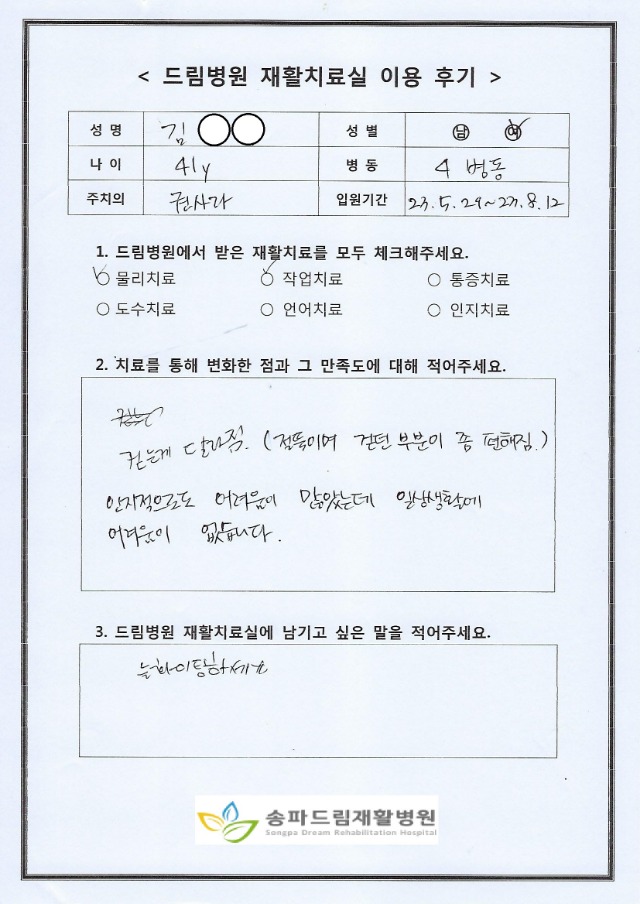 < 드림병원 재활치료실 이용 후기 >
성 명 김 성 별 남 여
나 이 41y 병 동 4 병동
주치의 권사라 입원기간 23.5.29~23.8.12
1. 드림병원에서 받은 재활치료를 모두 체크해주세요.
물리치료 작업치료 통증치료
도수치료 언어치료 인지치료
2. 치료를 통해 변화한 점과 그 만족도에 대해 적어주세요.
걷는게 달라짐. (절뚝이며 걷던 부분이 좀 편해짐.)
인지적으로도 어려움이 많았는데 일상생활에
어려움이 없습니다.
3. 드림병원 재활치료실에 남기고 싶은 말을 적어주세요.
늘 화이팅하세요
송파드림재활병원
Songpa Dream Rehabilitation Hospital